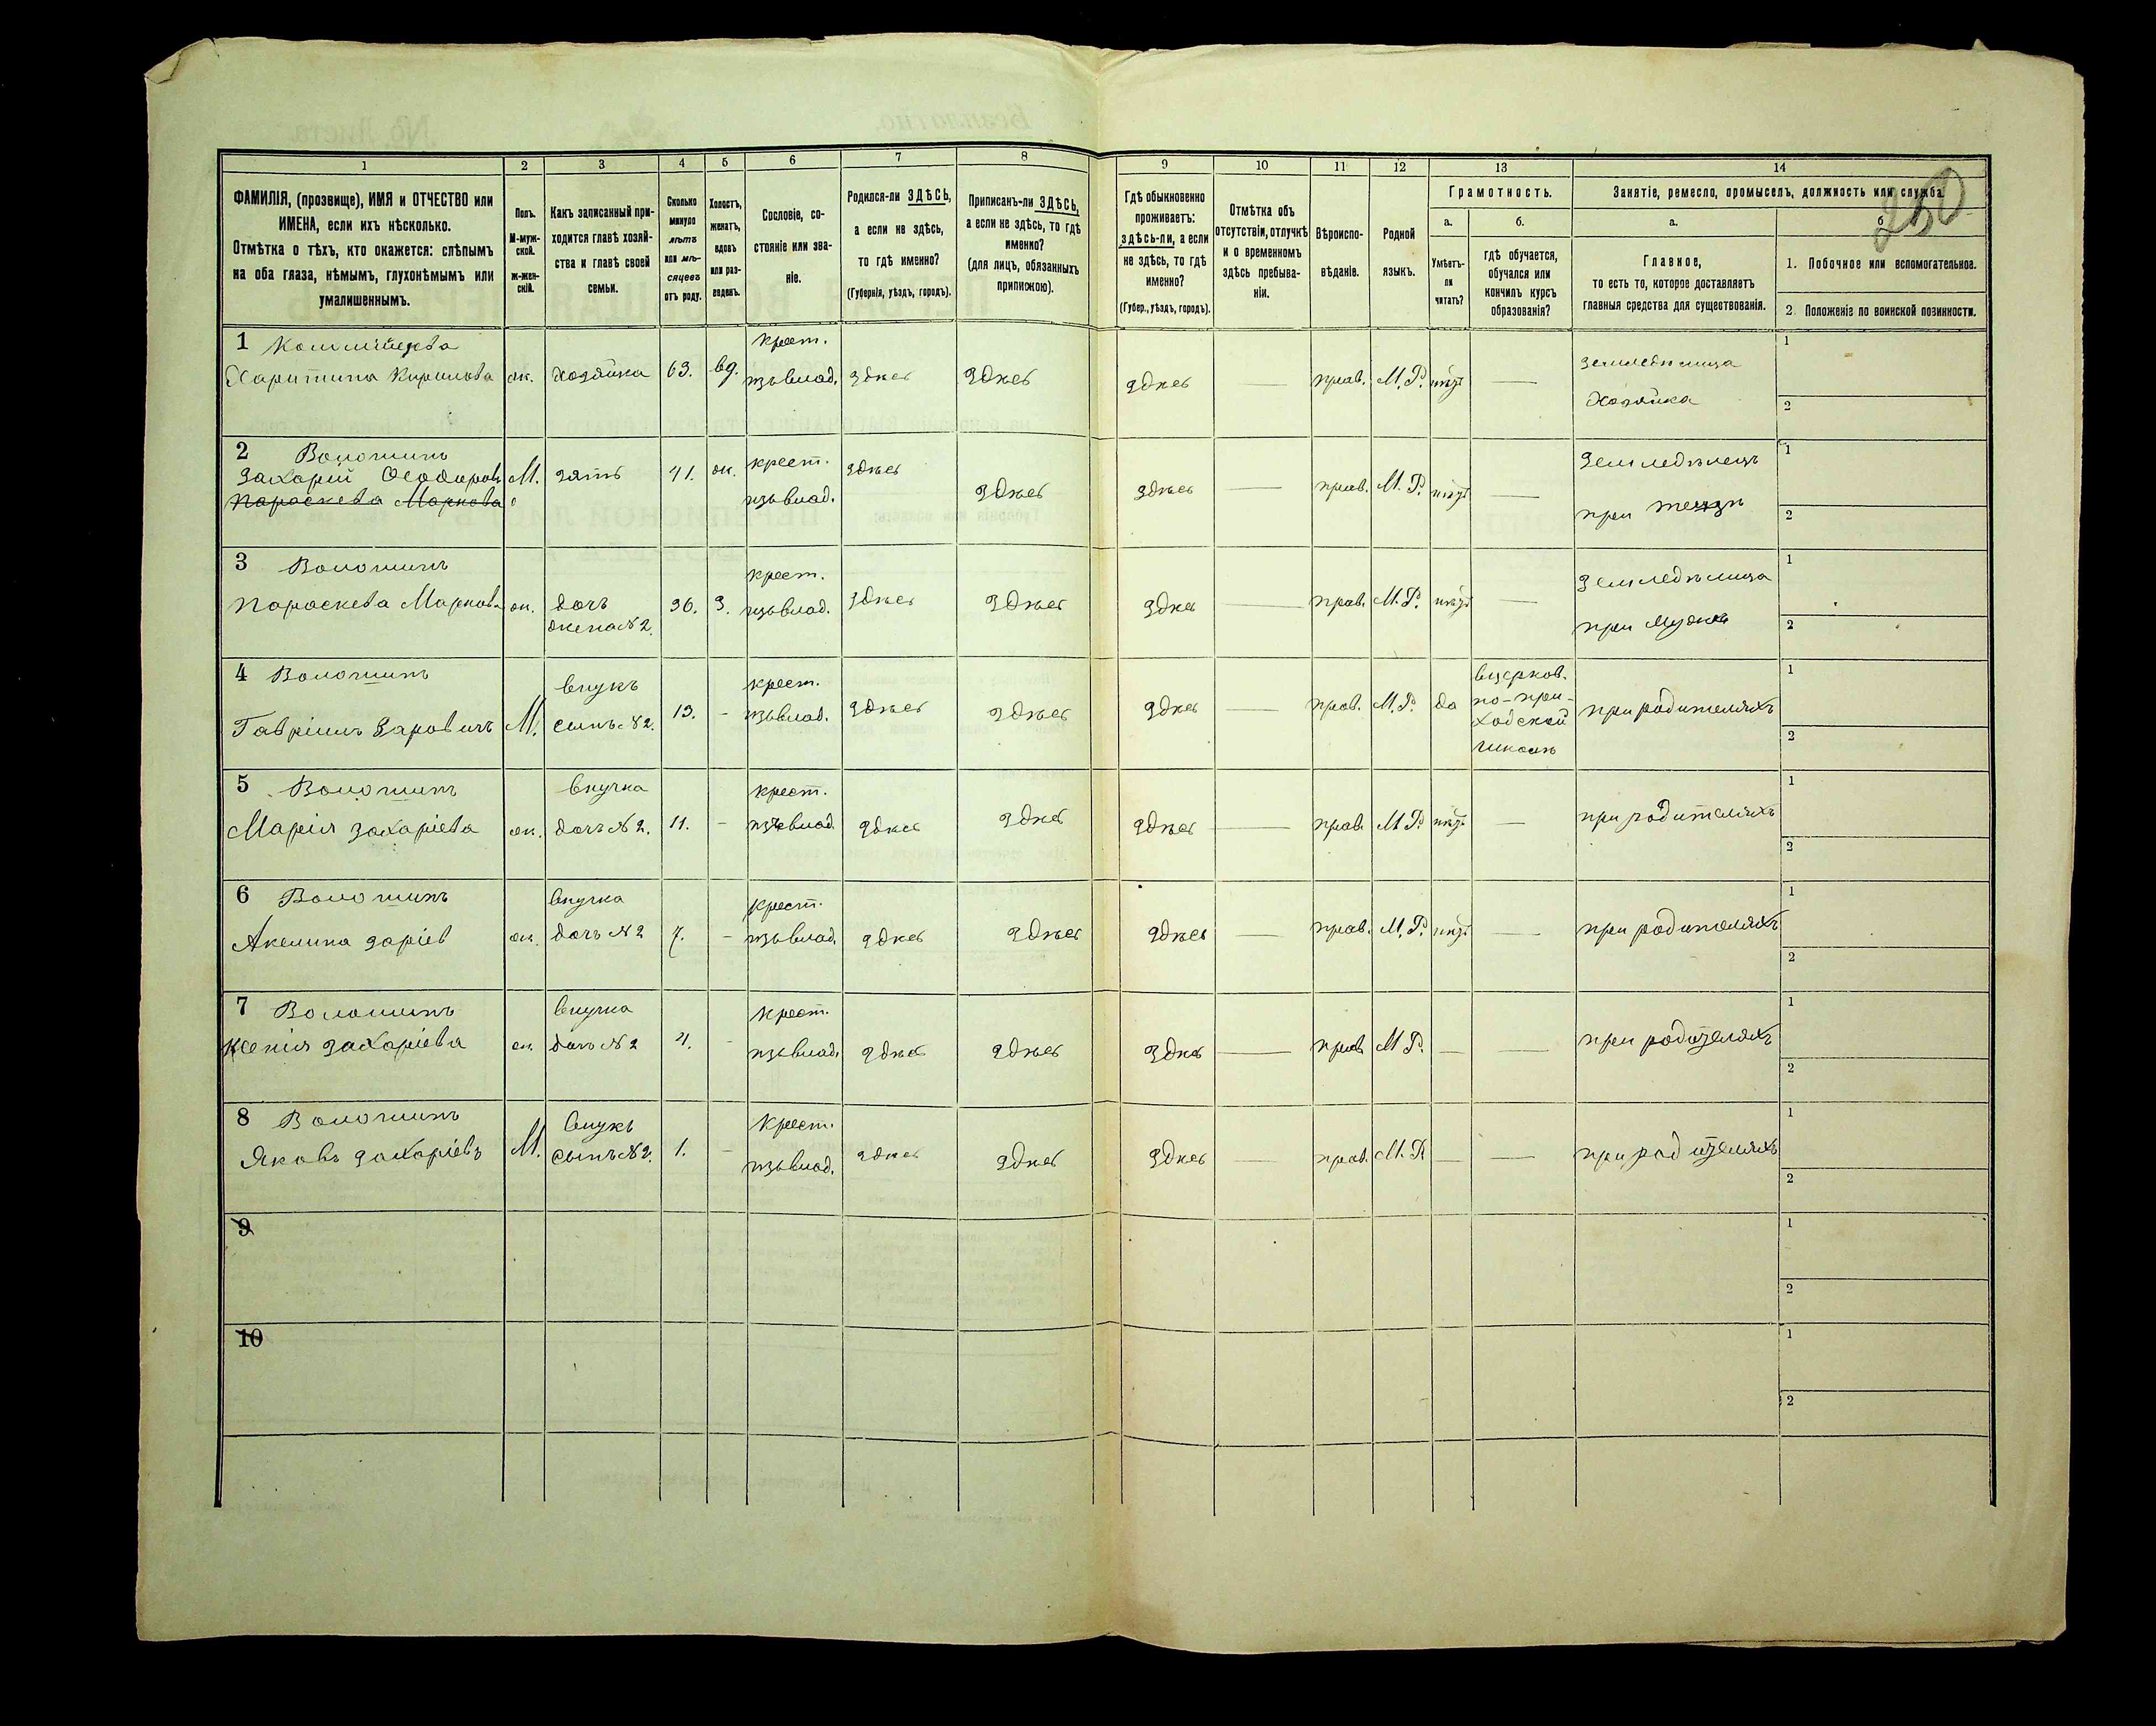 250
1 2 3 4 5 6 7 8 9 10 11 12 13 14
ФАМИЛІЯ, (прозвище), ИМЯ и ОТЧЕСТВО или
ИМЕНА, если ихъ нѣсколько.
Отмѣтка о тѣхъ, кто окажется: слѣпымъ
на оба глаза, нѣмымъ, глухонѣмымъ или
умалишеннымъ.
Полъ.
М-муж-
ской.
Ж-жен-
скій.
Какъ записанный при-
ходится главѣ хозяй-
ства и главѣ своей
семьи.
Сколько
минуло
лѣтъ
или мѣ-
сяцевъ
отъ роду.
Холостъ,
женатъ,
вдовъ
или раз-
веденъ.
Сословіе, со-
стояніе или зва-
ніе.
Родился-ли ЗДѢСЬ,
а если не здѣсь,
то гдѣ именно?
(Губернія, уѣздъ, городъ).
Приписанъ-ли ЗДѢСЬ,
а если не здѣсь, то гдѣ
именно?
(для лицъ, обязанныхъ
припискою).
Гдѣ обыкновенно
проживаетъ:
здѣсь-ли, а если
не здѣсь, то гдѣ
именно?
(Губер., уѣздъ, городъ).
Отмѣтка объ
отсутствіи, отлучкѣ
и о временномъ
здѣсь пребыва-
ніи.
Вѣроиспо-
вѣданіе.
Родной
языкъ.
Грамотность.
а.
Умѣетъ-
ли
читать?
б.
гдѣ обучается,
обучался или
кончилъ курсъ
образованія?
Занятіе, ремесло, промыселъ, должность или служба.
а.
Главное,
то есть то, которое доставляетъ
главныя средства для существованія.
б
1. Побочное или вспомогательное.
2. Положеніе по воинской повинности.
1
Харитина Кирилова ж. хозяйка 63. вд. крест.
изъ влад. здѣсь здѣсь здѣсь — прав. М.Р. нѣтъ —
Земледѣлица
Хозяйка
1
2
2 Волошинъ
Захарій Ѳеодоровъ М. зять 41. ж. крест.
изъ влад. здѣсь здѣсь здѣсь — прав. М.Р. нѣтъ —
Параскева Маркова
Земледѣлецъ
при
1
2
3 Волошинъ
Параскева Маркова ж. дочь
жена №2. 36. З. крест.
изъ влад. здѣсь здѣсь здѣсь — прав. М.Р. нѣтъ —
Земледѣлица
при мужѣ
1
2
4 Волошинъ
Гавріилъ М. внукъ
сынъ №2. 13. - крест.
изъ влад. здѣсь здѣсь здѣсь — прав. М.Р. да
въ церков.
но-при-
ходской
школѣ
при родителяхъ
1
2
5 Волошинъ
Марія Захаріева ж. внучка
дочь №2. 11. - крест.
изъ влад. здѣсь здѣсь здѣсь — прав. М.Р. нѣтъ —
при родителяхъ
1
2
6 Волошинъ
Акелина ж. внучка
дочь №2 7. - крест.
изъ влад. здѣсь здѣсь здѣсь — прав. М.Р. нѣтъ —
при родителяхъ
1
2
7 Волошинъ
Ксенія Захаріева ж. внучка
дочь №2 4. - крест.
изъ влад. здѣсь здѣсь здѣсь — прав. М.Р. — —
при родителяхъ
1
2
8 Волошинъ
Яковъ Захаріевъ М. внукъ
сынъ №2. 1. - крест.
изъ влад. здѣсь здѣсь здѣсь — прав. М.Р. — —
при родителяхъ
1
2
9
1
2
10
1
2